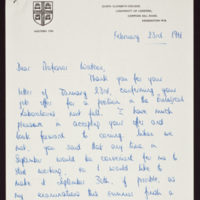 QUEEN ELIZABETH COLLEGE,
UNIVERSITY OF LONDON,
CAMPDEN HILL ROAD,
KENSINGTON W.8.
February 23rd
Dear Professor Watson,
Thank you for your
letter of January 23rd, confirming your
job offer for a position in the
laboratories next fall. I have much
pleasure in accepting your offer and
look forward to coming. When we
met, you said that any time in
September would be convenient for me to
start working, so I would like to
make it September 30th, if possible, as
my examinations this summer finish